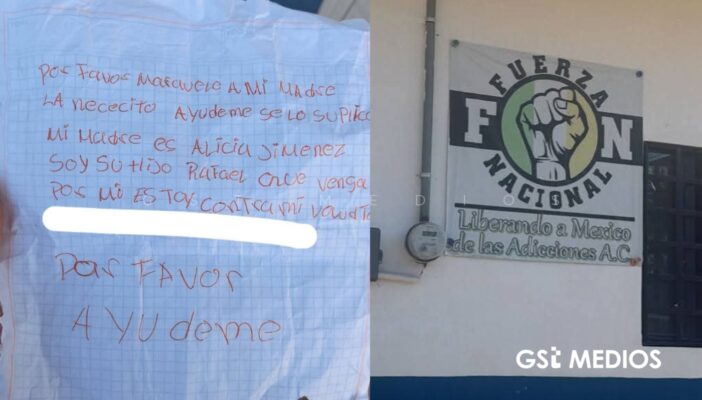 Por Favor Marquele A Mi MADRE
LA Nececito Ayudeme se lo suplico
Mi Madre es ALiciA Jimenez
Soy su Hijo RAFAEL Que venga
Por Mi Estoy contra mi volunta
Por FAVOR
AYUdeme
FUERZA
F N
NACIONAL
Liberando a Mexico
de las Adicciones A.C.
GSt MEDIOS